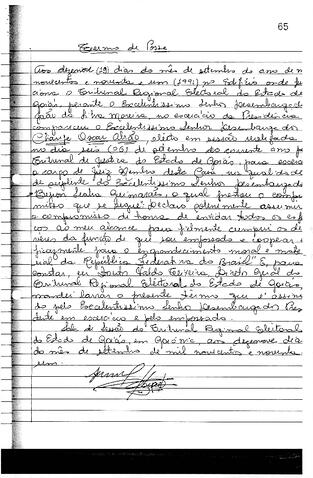 65
Termo de Posse
Aos dezenove (19) dias do mês de setembro do ano de n
novecentos e noventa e um (1991) no Edifício onde f
ciona o Tribunal Regional Eleitoral do Estado de
Goiás, perante o Excelentíssimo Senhor Desembargado
João da Silva no exercício da Presidência
compareceu o Excelentíssimo Senhor Desembargador
eleito em sessão realizada
no dia seis (06) de setembro do corrente ano p
Tribunal de Justiça do Estado de Goiás, para exerce
o cargo de Juiz Membro desta Corte na qualidade
de suplente do Excelentíssimo Senhor Desembargado
Byron Seabra Guimarães, o qual prestou o compro
misso que se segue: Declaro solenemente assumi
o compromisso de honra de envidar todos os esfor
ços ao meu alcance para fielmente cumprir os de
veres da função de que sou empossado e cooperar e
para o engrandecimento moral e mate
rial da República Federativa do Brasil. E, para
constar, eu Ferreira, Diretor Geral do
Tribunal Regional Eleitoral do Estado de Goiás,
mandei lavrar o presente termo que é assina
do pelo Excelentíssimo Senhor Desembargador Pres
dente em exercício e pelo empossado.
Sala de Sessão do Tribunal Regional Eleitoral
do Estado de Goiás, em Goiânia, aos dezenove dia
do mês de setembro de mil novecentos e noventa
um.